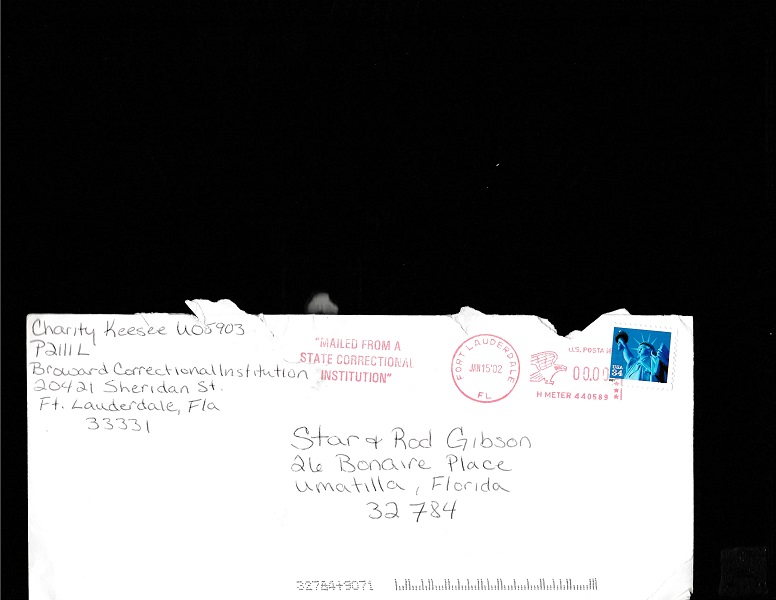 Charity Keesee U05903
P2111L
Broward Correctional Institution
20421 Sheridan St.
Ft. Lauderdale, Fla
33331
"MAILED FROM A
STATE CORRECTIONAL
INSTITUTION"
FORT LAUDERDALE
JAN 15'02
FL
U.S. POSTA
00.0
H METER 440589
USA
34
Star & Rod Gibson
26 Bonaire Place
Umatilla, Florida
32784
32784+9071